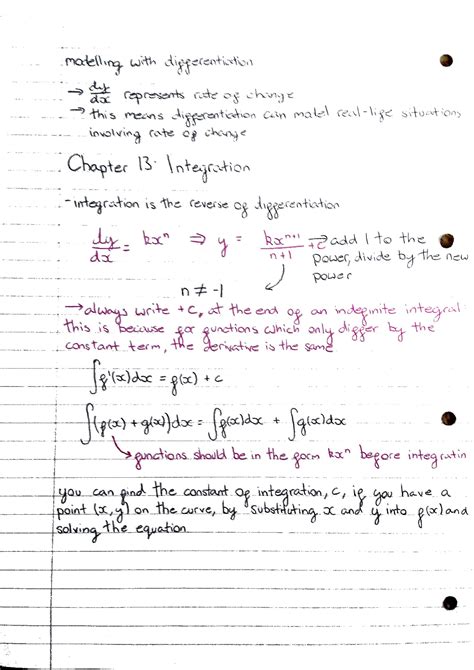 modelling with differentiation
→ dy/dx represents rate of change
→ this means differentiation can model real-life situations
involving rate of change
Chapter 13: Integration
- integration is the reverse of differentiation
dy/dx = kxⁿ ⇒ y = kxⁿ⁺¹/n+1 + c → add 1 to the
power, divide by the new
power
n ≠ -1
→ always write +c, at the end of an indefinite integral
this is because for functions which only differ by the
constant term, the derivative is the same.
∫f'(x)dx = f(x) + c
∫(f(x) + g(x))dx = ∫f(x)dx + ∫g(x)dx
functions should be in the form kxⁿ before integratin
you can find the constant of integration, c, if you have a
point (x,y) on the curve, by substituting x and y into f(x) and
solving the equation.